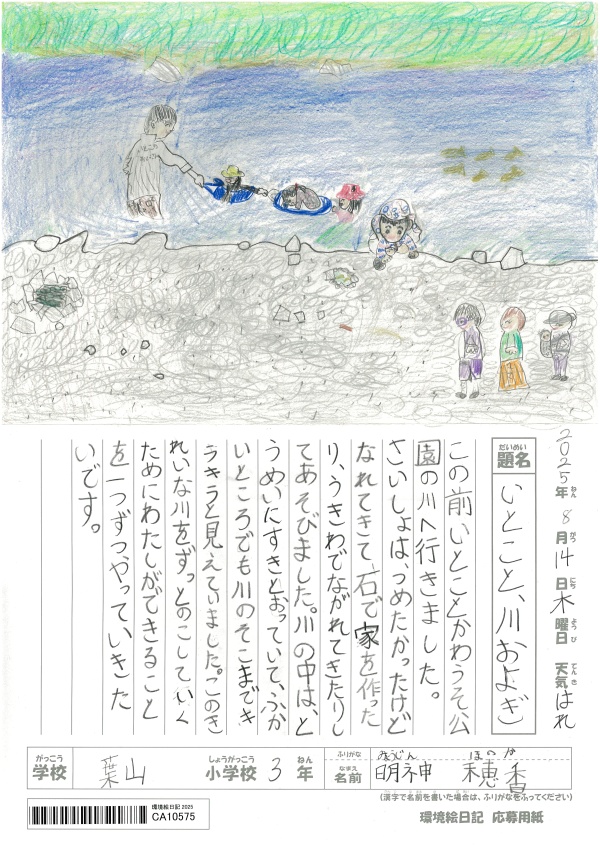 2025年 8月14日 木曜日 天気 はれ
ねん がつ にち ようび てんき
だいめい
題名 いとこと、川およぎ
この前いとことかわうそ公
園の川へ行きました。
さいしょは、つめたかったけど
なれてきて、石で家を作った
り、うきわでながれてきたりし
てあそびました。川の中は、と
うめいにすきとおっていて、ふか
いところでも川のそこまでき
らきらと見えていました。このき
れいな川をずっとのこしていく
ためにわたしができること
を一つずつ、やっていきた
いです。
がっこう しょうがっこう ねん ふりがな みょうじん ほのか
学校 葉山 小学校 3年 なまえ 名前 明神 穂香
(漢字で名前を書いた場合は、ふりがなをふってください)
環境絵日記 2025
CA10575
環境絵日記 応募用紙